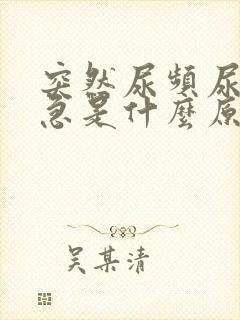 突然尿頻尿
急是什麼原
吴某清